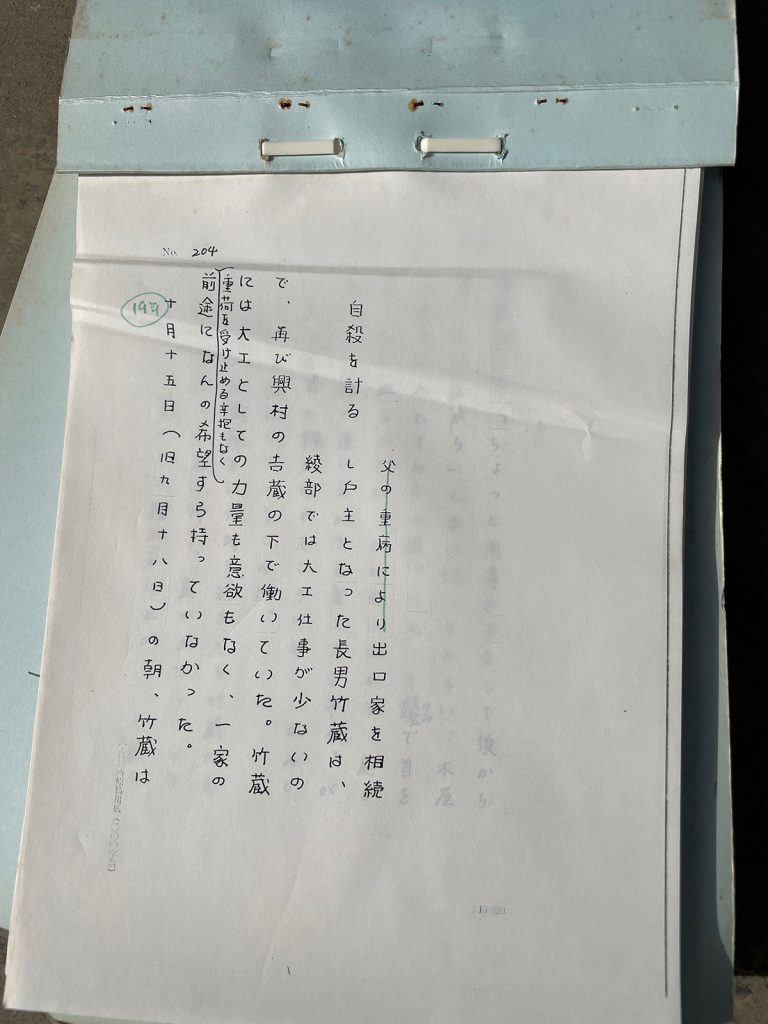 No. 204
自殺を計る
父の重病により出口家を相続
し戸主となった長男竹蔵は、
綾部では大工仕事が少ないの
で、再び興村の吉蔵の下で働いていた。竹蔵
には大工としての力量も意欲もなく、一家の
重荷を受け止める辛抱もなく
前途になんの希望すら持っていなかった。
十月十五日(旧九月十八日)の朝、竹蔵は
原稿用紙(二〇〇字詰)